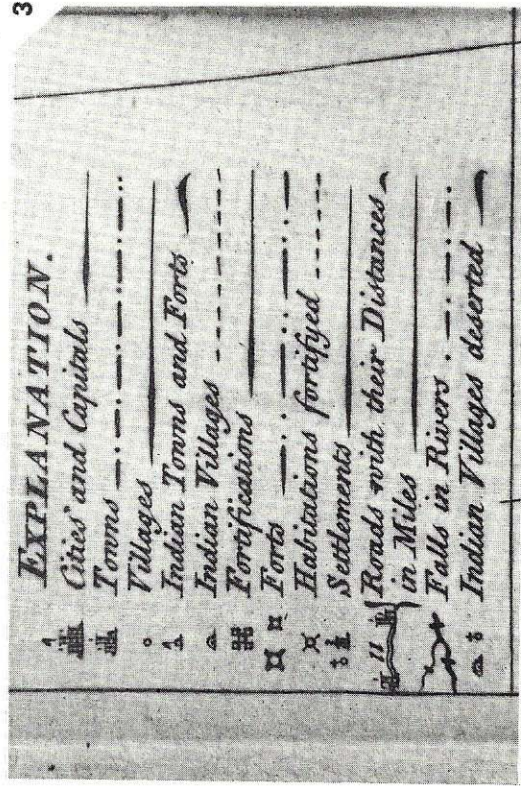 3
EXPLANATION.
Cities and Capitals
Towns
Villages
Indian Towns and Forts
Indian Villages
Fortifications
Forts
Habitations fortifyed
Settlements
11 Roads with their Distances
in Miles
Falls in Rivers
Indian Villages deserted